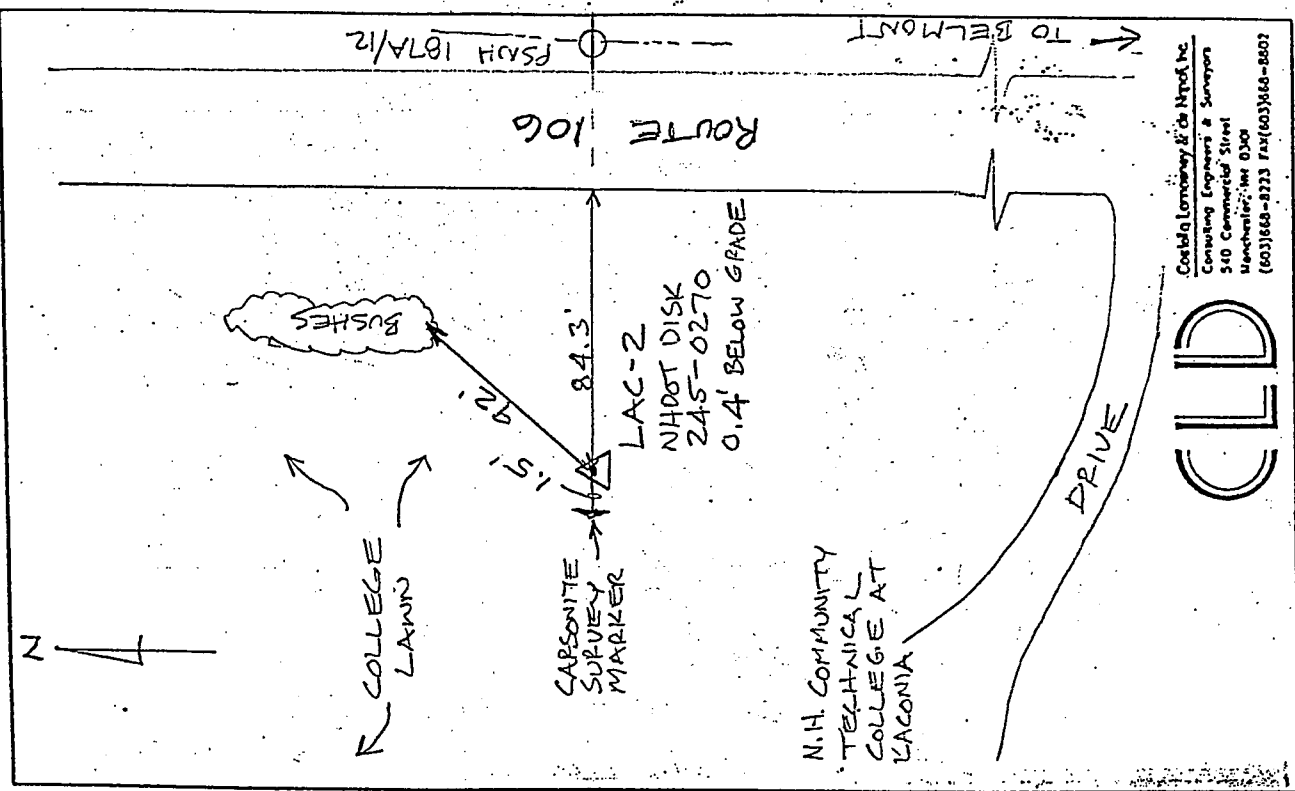 N
PSNH 187A/12
TO BELMONT
ROUTE 106
BUSHES
92'
84.3'
1.5'
LAC-2
NHDOT DISK
245-0270
0.4' BELOW GRADE
COLLEGE
LAWN
CARSONITE
SURVEY
MARKER
N.H. COMMUNITY
TECHNICAL
COLLEGE AT
LACONIA
DRIVE
CLD
Costello, Lomasney & de Napoli, Inc.
Consulting Engineers & Surveyors
540 Commercial Street
Manchester, NH 03101
(603)668-8223 FAX(603)668-8802